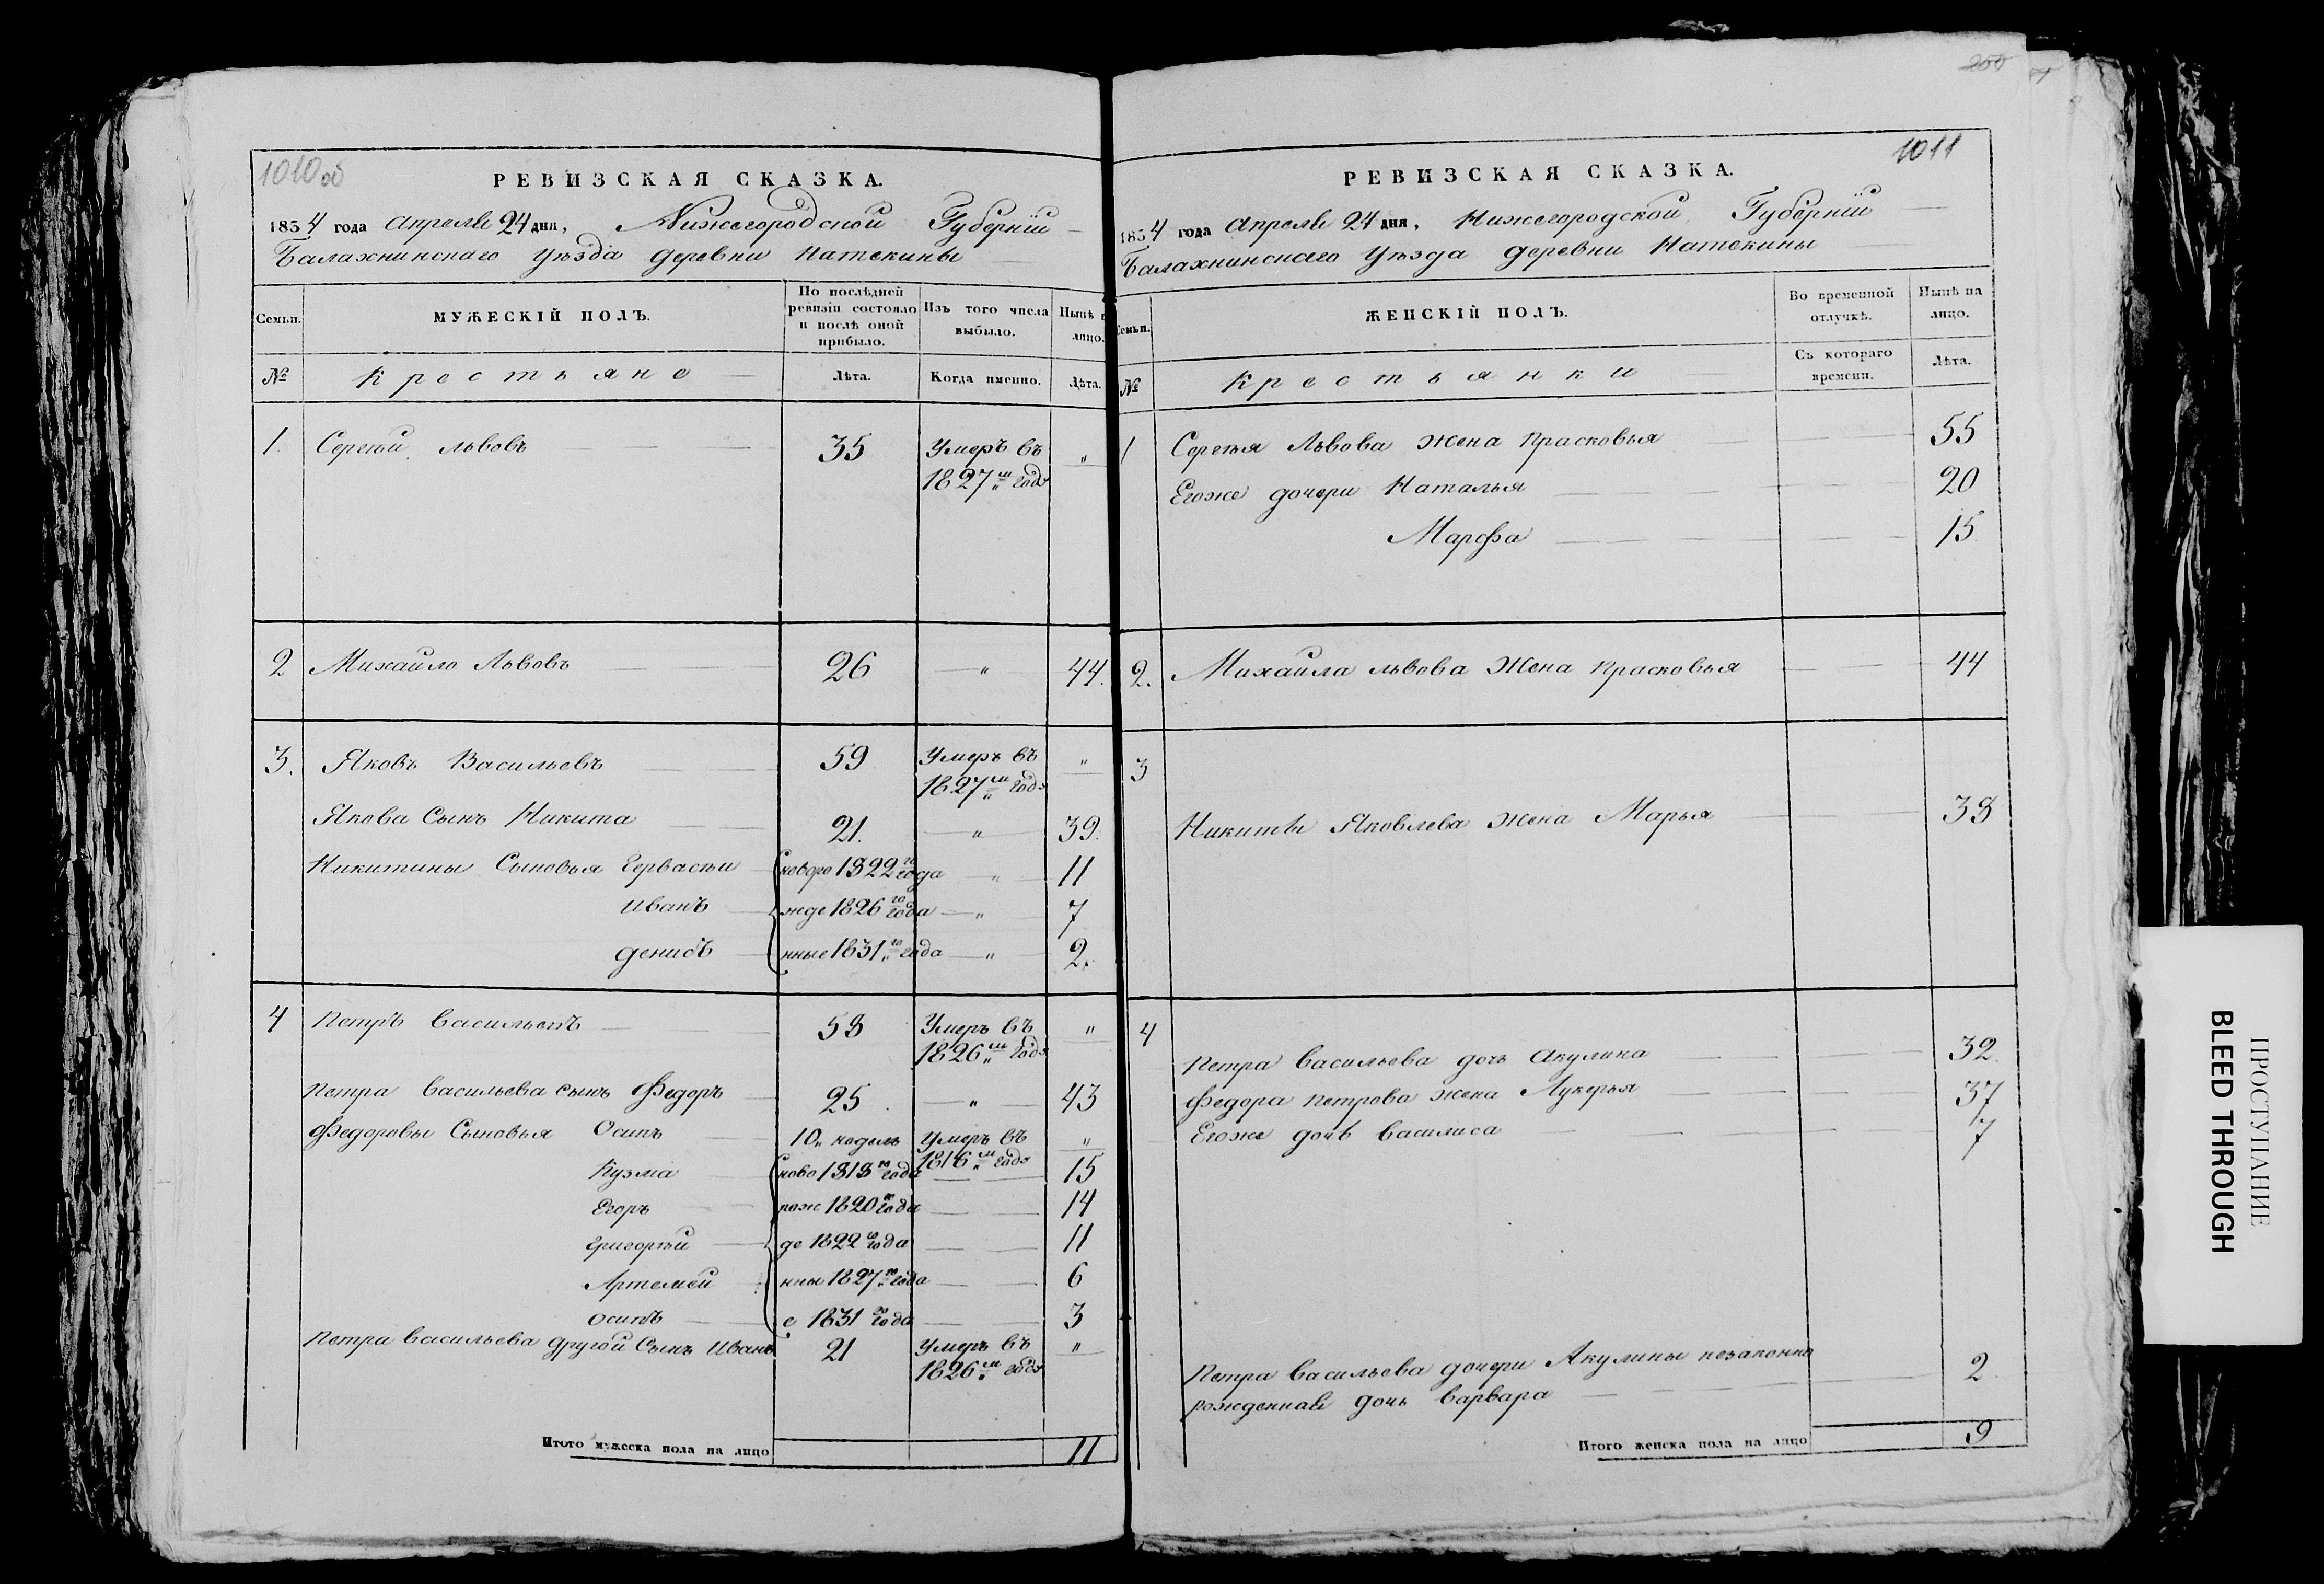 1010 об
РЕВИЗСКАЯ СКАЗКА.
1834 года Апреля 24 дня, Нижегородской Губернiи
Балахнинскаго Уезда деревни Натекины
Семьи.
МУЖЕСКIЙ ПОЛЪ.
По послѣдней ревизiи состояло и послѣ оной прибыло.
Изъ того числа выбыло.
Нынѣ на лицо.
№ Крестьяне Лѣта. Когда именно. Лѣта.
1. Сергѣй Львовъ 35 Умеръ въ "
1827 м году
2 Михайло Львовъ 26 " 44.
3. Яковъ Васильевъ 59 Умеръ въ "
1827 м году
Якова Сынъ Никита 21. " 39.
Никитины Сыновья Герваси новоро 1822 го года " 11
Иванъ жде 1826 го года " 7
денисъ нные 1831 го года " 2.
4 Петръ Васильевъ 58 Умеръ въ "
1826 м году
Петра Васильева сынъ Федоръ 25 " 43
Федоровы Сыновья Осипъ 10 недель Умеръ въ "
1816 м году
Кузма ново 1818 го года 15
Егоръ рож 1820 го года 14
Григорѣй де 1822 го года 11
Артемей нны 1827 го года 6
Осипъ е 1831 го года 3
Петра Васильева другой Сынъ Иванъ 21 Умеръ въ "
1826 м году
Итого мужеска пола на лицо 11
1011
РЕВИЗСКАЯ СКАЗКА.
1834 года Апреля 24 дня, Нижегородской Губернiи
Балахнинскаго Уезда деревни Натекины
Семьи.
ЖЕНСКIЙ ПОЛЪ.
Во временной отлучкѣ.
Нынѣ на лицо.
№ Крестьянки Съ котораго времени. Лѣта.
1 Сергѣя Львова Жена Прасковья 55
Егоже дочери Наталья 20
Марфа 15
2. Михайла Львова Жена Прасковья 44
3
Никиты Яковлева Жена Марья 38
4
Петра Васильева дочь Акулина 32
Федора Петрова жена Лукерья 37
Егоже дочь Василиса 7
Петра Васильева дочери Акулины незаконно 2
рожденная дочь Варвара
Итого женска пола на лицо 9
ПРОСТУПАНИЕ
BLEED THROUGH